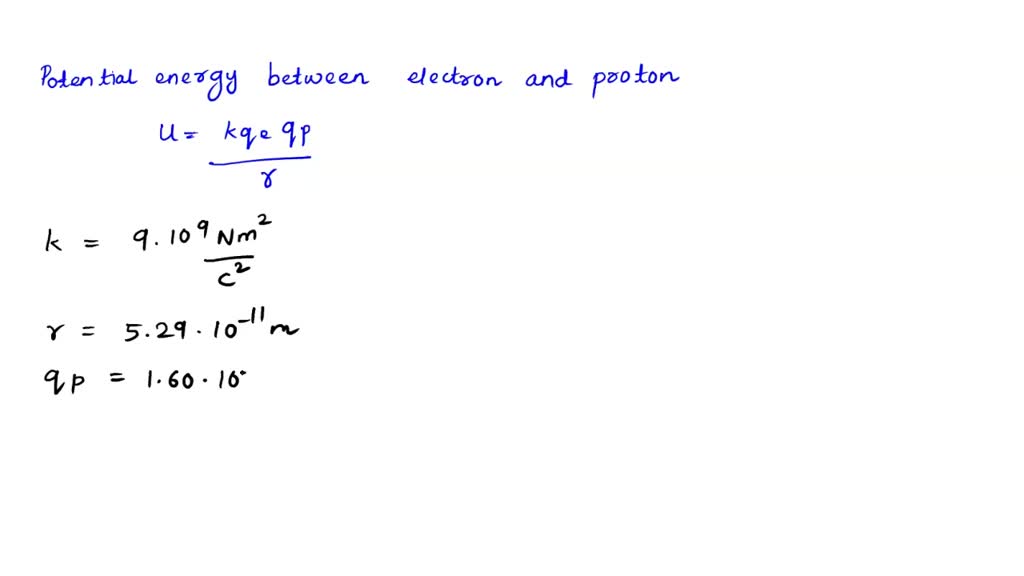 Potential energy between electron and proton
U = kqe qp / r
k = 9.10⁹ Nm² / C²
r = 5.29 · 10⁻¹¹ m
qp = 1.60 · 10